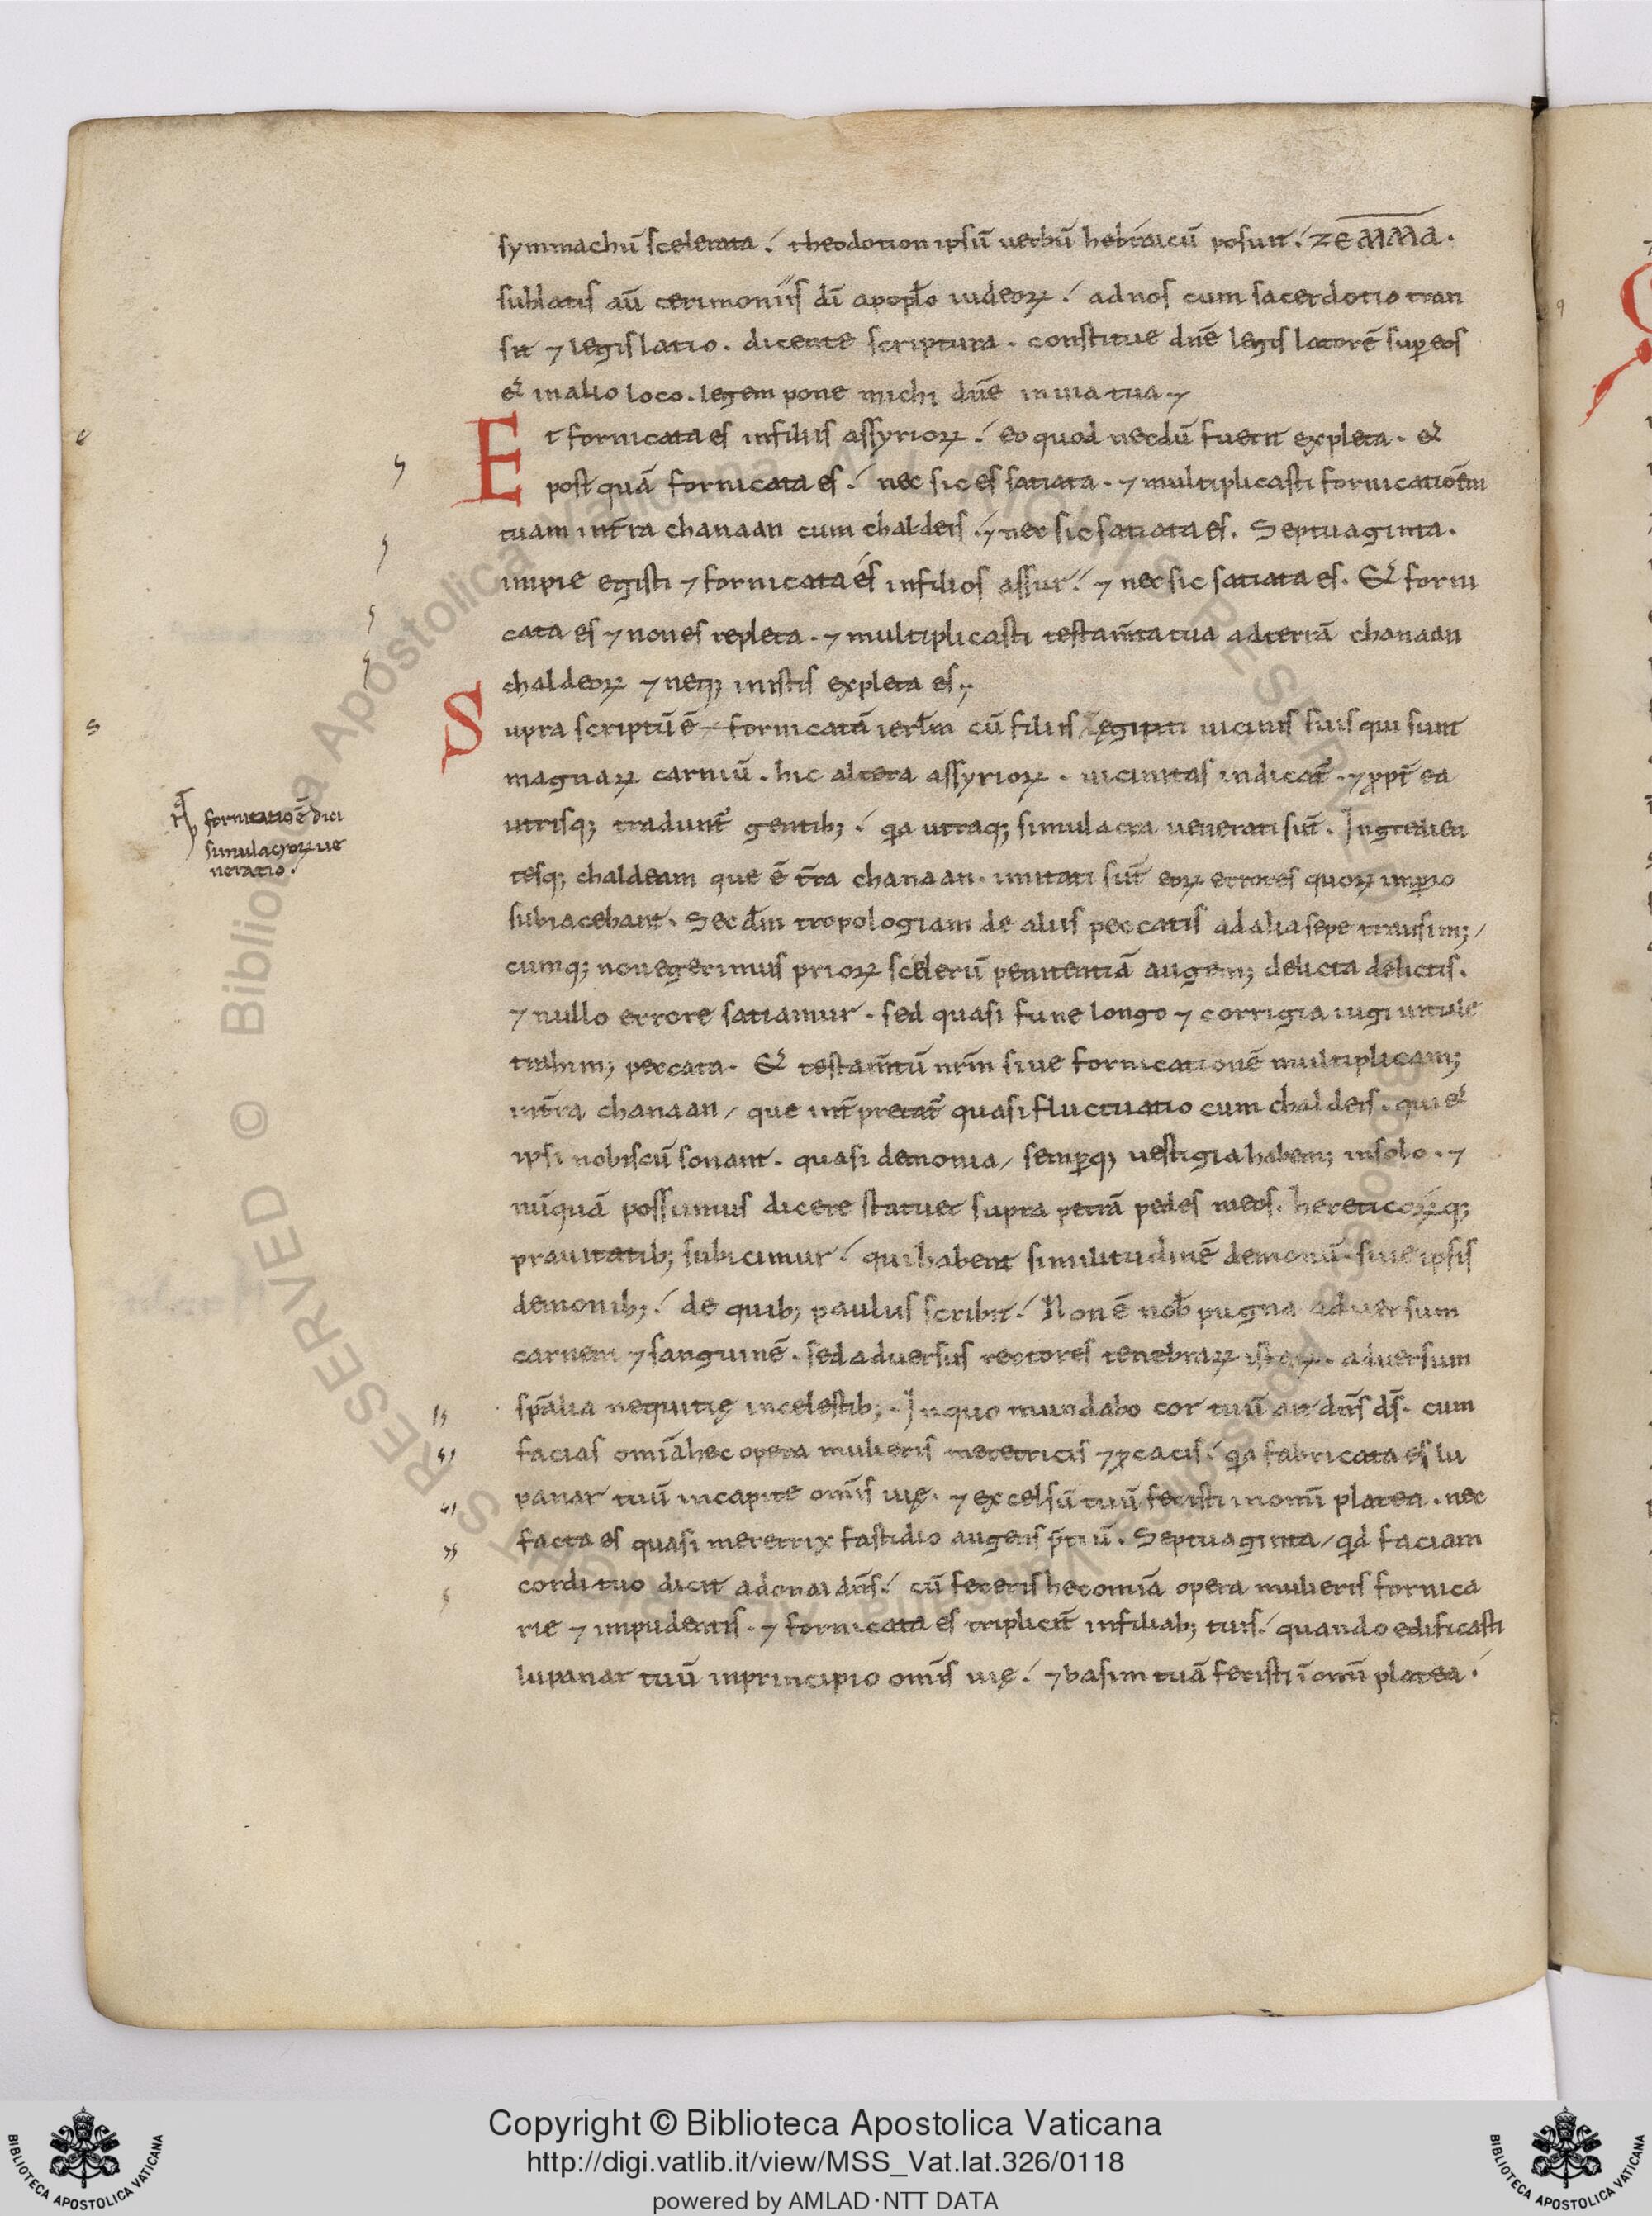 symmachū scelerata. theodotion ipsū uerbū hebraicū posuit. ZEMMA.
sublatis aū cerimoniis dī apoplo iudeoꝝ. ad nos cum sacerdotio tran
sit ⁊ legislatio. dicente scriptura. constitue dnē legis latorē sup eos
& in alio loco. legem pone michi dnē in uia tua ⁊
Et fornicata es in filiis assyrioꝝ. eo quod necdū fuerit expleta. &
postquā fornicata es. nec sic es satiata. ⁊ multiplicasti fornicationēm
tuam in tr̄ra chanaan cum chaldeis. ⁊ nec sic satiata es. Septuaginta.
impie egisti ⁊ fornicata es in filios assur. ⁊ nec sic satiata es. & forni
cata es ⁊ non es repleta. ⁊ multiplicasti testam̄ta tua ad terrā chanaan
chaldeoꝝ ⁊ neq; in istis expleta es;
Supra scriptū ē fornicatā ierlm̄ cū filiis ęgipti uicinis suis qui sunt
magnaꝝ carniū. hic altera assyrioꝝ. uicinitas indicat̄. ⁊ ꝓpt̄ ea
utrisq; tradunt̄ gentib;. qa utraq; simulacra uenerati sūt. Ingredien
tesq; chaldeam que ē t̄ra chanaan. imitati sūt eoꝝ errores quoꝝ impio
subiacebant. Secdm̄ tropologiam de aliis peccatis ad alia sepe transim;
cumq; non egerimus prioꝝ scelerū penitentiā augem; delicta delictis.
⁊ nullo errore satiamur. sed quasi fune longo ⁊ corrigia iugi uitule
trahim; peccata. & testam̄tū nrm̄ siue fornicationē multiplicam;
in t̄ra chanaan, que int̄pretat̄ quasi fluctuatio cum chaldeis. qui &
ipsi nobiscū sonant. quasi demonia, semp̱q; uestigia habem; in solo. ⁊
nūquā possumus dicere statuet supra petrā pedes meos. hereticoꝝq;
prauitatib; subicimur. qui habent similitudinē demonū. siue ipsis
demonib;. de quib; paulus scribit. Non ē nob̄ pugna aduersum
carnem ⁊ sanguinē. sed aduersus rectores tenebraꝝ istaꝝ. aduersum
spālia nequitię in celestib;. In quo mundabo cor tuū ait dn̄s ds̄. cum
facias omīa hec opera mulieris meretricis ⁊ ꝓcacis. qa fabricata es lu
panar tuū in capite omīs uię. ⁊ excelsū tuū fecisti in omī platea. nec
facta es quasi meretrix fastidio augens p̄tiū. Septuaginta, qd faciam
cordi tuo dicit adonai dn̄s. cū feceris hec omīa opera mulieris fornica
rie ⁊ impudentis. ⁊ fornicata es triplicit̄ in filiab; tuis. quando edificasti
lupanar tuū in principio omīs uię. ⁊ basim tuā fecisti ī omī platea.
fornicatio ē dici
simulacroꝝ ue
neratio.
RESERVED © Biblioteca Apostolica Vaticana
Copyright © Biblioteca Apostolica Vaticana
http://digi.vatlib.it/view/MSS_Vat.lat.326/0118
powered by AMLAD·NTT DATA
BIBLIOTECA APOSTOLICA VATICANA
BIBLIOTECA APOSTOLICA VATICANA